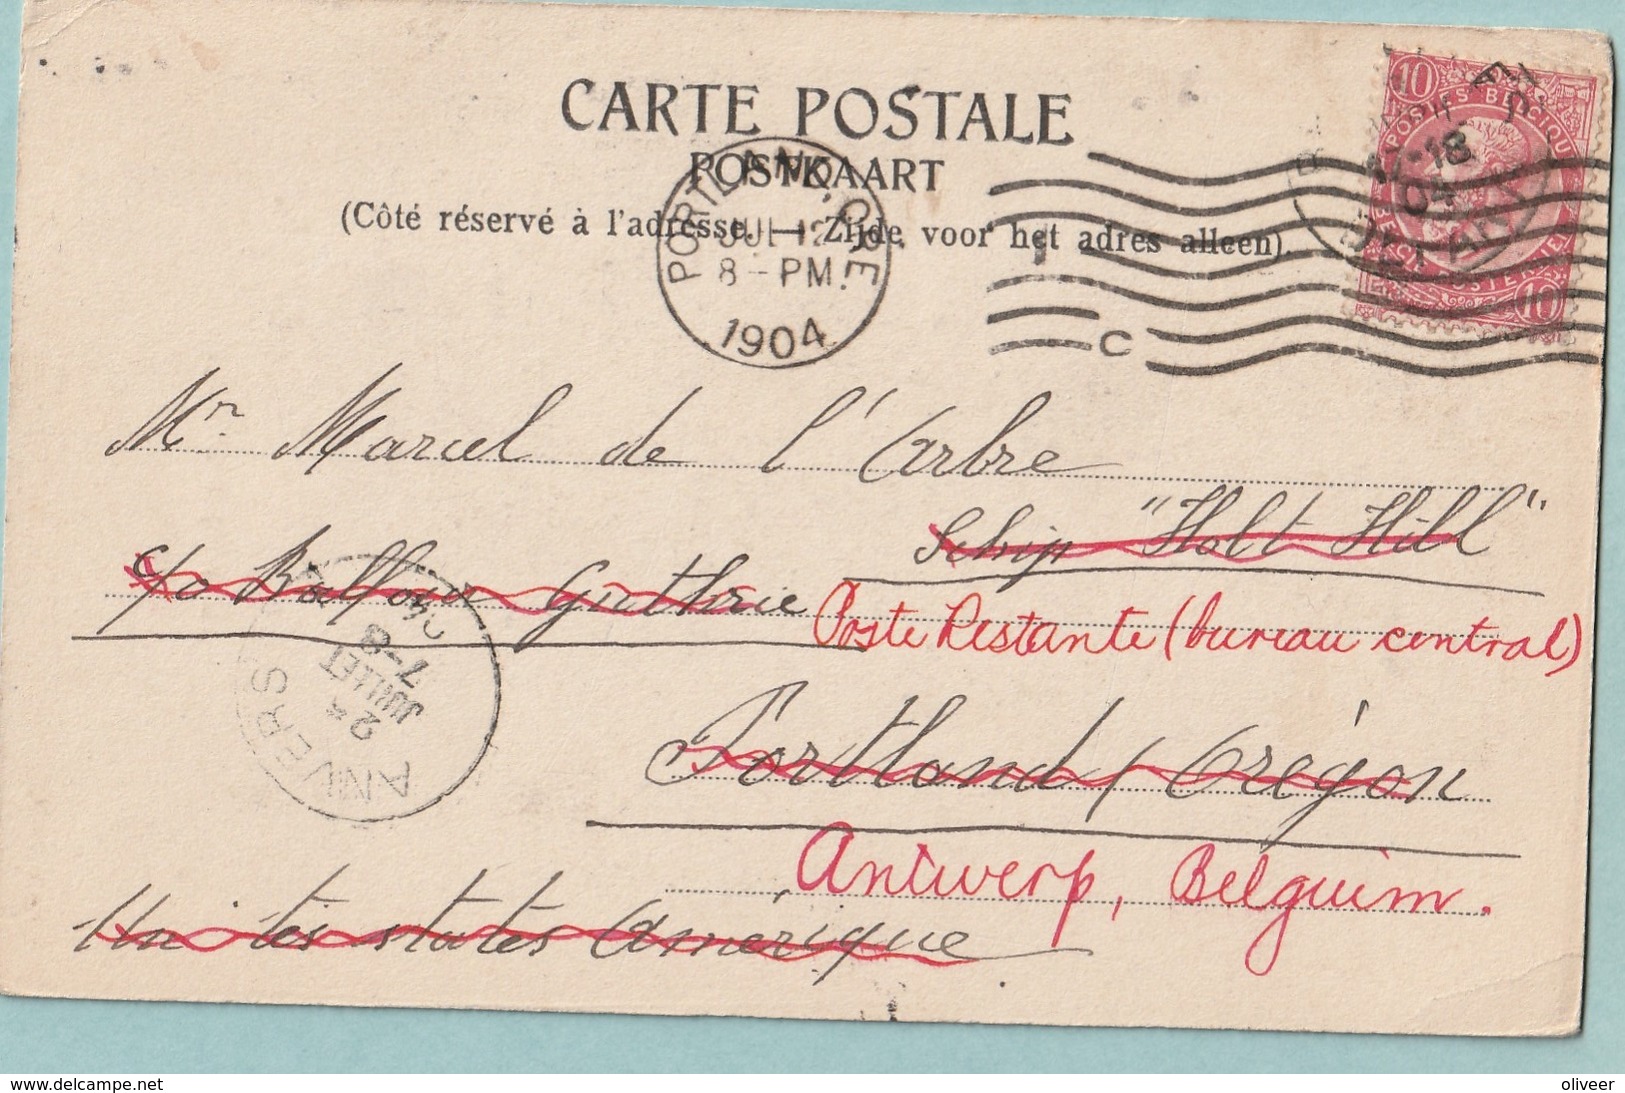 CARTE POSTALE
POSTKAART
(Côté réservé à l'adresse. — Zijde voor het adres alleen).
PORTLAND, ORE
JUL 12
8 - PM.
1904
C
10 10
POSTES BELGIQUE
10
18
04
Mr Marcel de l'Arbre
Schip "Holt Hill"
c/o Balfour Guthrie
Poste Restante (bureau central)
Portland, Orégon
Antwerp, Belguim.
Unites states Amérique
ANVERS
JUILLET
7-8
delcampe.net
oliveer